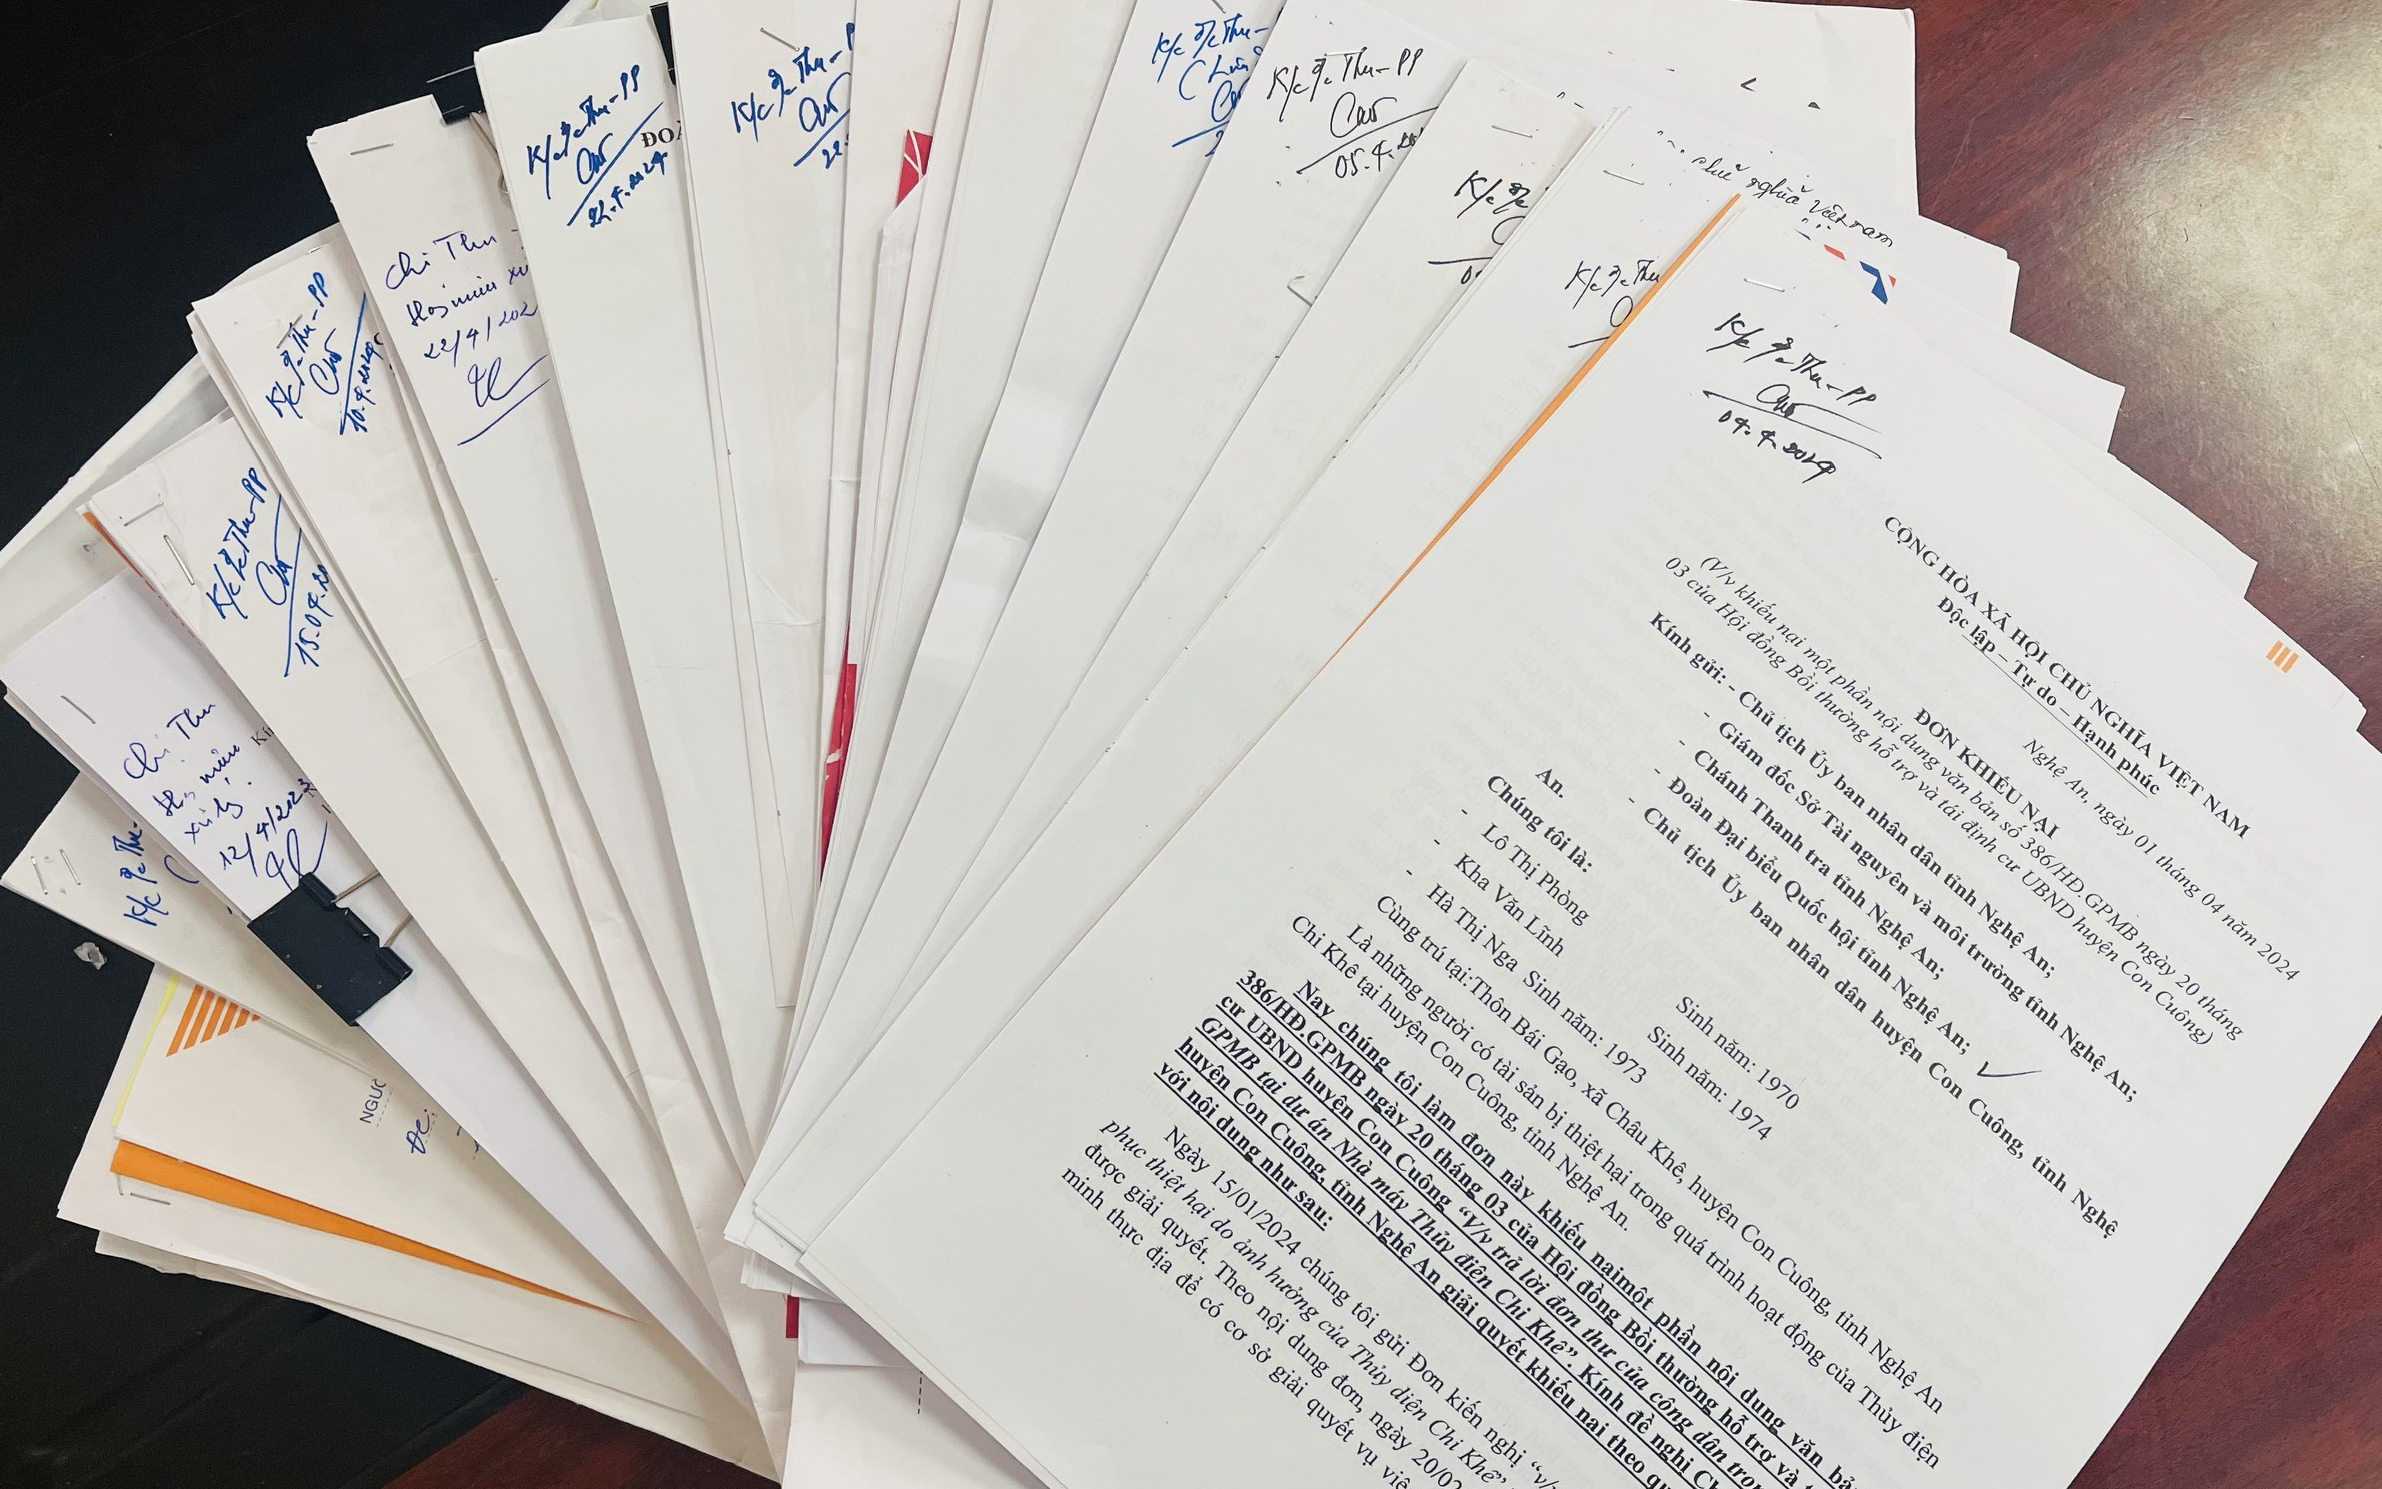 K/c đ/c Thu - PP
04.4.2024
CỘNG HÒA XÃ HỘI CHỦ NGHĨA VIỆT NAM
Độc lập – Tự do – Hạnh phúc
Nghệ An, ngày 01 tháng 04 năm 2024
ĐƠN KHIẾU NẠI
(V/v khiếu nại một phần nội dung văn bản số 386/HĐ.GPMB ngày 20 tháng
03 của Hội đồng Bồi thường hỗ trợ và tái định cư UBND huyện Con Cuông)
Kính gửi: - Chủ tịch Ủy ban nhân dân tỉnh Nghệ An;
- Giám đốc Sở Tài nguyên và môi trường tỉnh Nghệ An;
- Chánh Thanh tra tỉnh Nghệ An;
- Đoàn Đại biểu Quốc hội tỉnh Nghệ An;
- Chủ tịch Ủy ban nhân dân huyện Con Cuông, tỉnh Nghệ
An.
Chúng tôi là:
- Lô Thị Phòng Sinh năm: 1970
- Kha Văn Lĩnh Sinh năm: 1974
- Hà Thị Nga Sinh năm: 1973
Cùng trú tại:Thôn Bái Gạo, xã Châu Khê, huyện Con Cuông, tỉnh Nghệ An
Là những người có tài sản bị thiệt hại trong quá trình hoạt động của Thủy điện
Chi Khê tại huyện Con Cuông, tỉnh Nghệ An.
Nay chúng tôi làm đơn này khiếu nạimột phần nội dung văn
386/HĐ.GPMB ngày 20 tháng 03 của Hội đồng Bồi thường hỗ trợ và
cư UBND huyện Con Cuông "V/v trả lời đơn thư của công dân
GPMB tại dự án Nhà máy Thủy điện Chi Khê". Kính đề nghị
huyện Con Cuông, tỉnh Nghệ An giải quyết khiếu nại theo
với nội dung như sau:
Ngày 15/01/2024 chúng tôi gửi Đơn kiến nghị "v/
phục thiệt hại do ảnh hưởng của Thủy điện Chi Khê"
được giải quyết. Theo nội dung đơn, ngày 20/02
minh thực địa để có cơ sở giải quyết vụ việ
nghĩa Việt nam
K/c đ/c Thu
K/c đ/c
K/c đ/c Thu - PP
05.4.
K/c đ/c Thu -
K/c đ/c Thu -
22.
K/c đ/c Thu - PP
22.4.2024
ĐOÀ
Chị Thu
22/4/202
K/c đ/c Thu - PP
10.4.2024
K/c đ/c Thu - PP
15.04.20
Chị Thu
xử lý
12/4/202
K/c đ/c Thu -
NGƯỜ
ĐC: